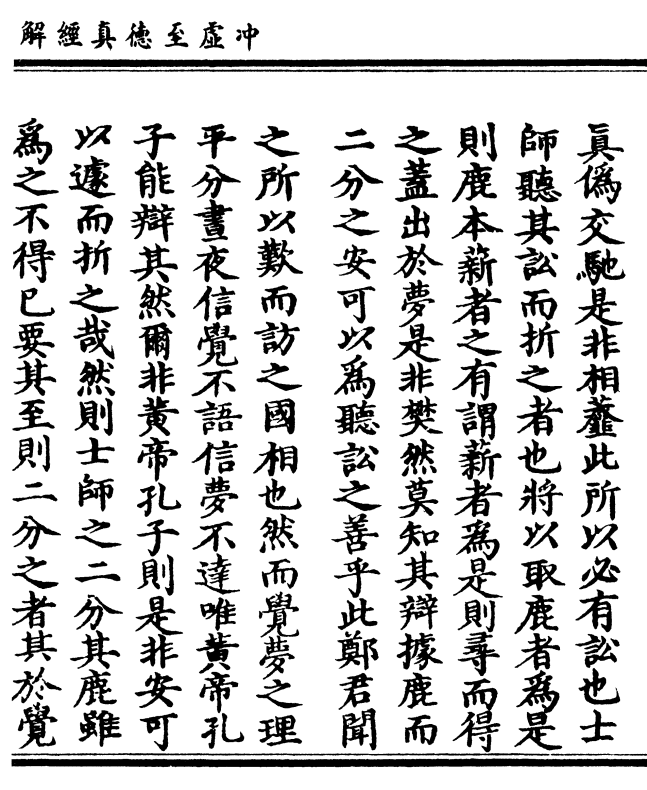 冲虛至德真經解
眞僞交馳是非相虀此所以必有訟也士
師聽其訟而折之者也將以取鹿者爲是
則鹿本薪者之有謂薪者爲是則尋而得
之蓋出於夢是非樊然莫知其辯據鹿而
二分之安可以爲聽訟之善乎此鄭君聞
之所以歎而訪之國相也然而覺夢之理
平分晝夜信覺不語信夢不達唯黄帝孔
子能辯其然爾非黄帝孔子則是非安可
以遽而折之哉然則士師之二分其鹿雖
爲之不得已要其至則二分之者其於覺